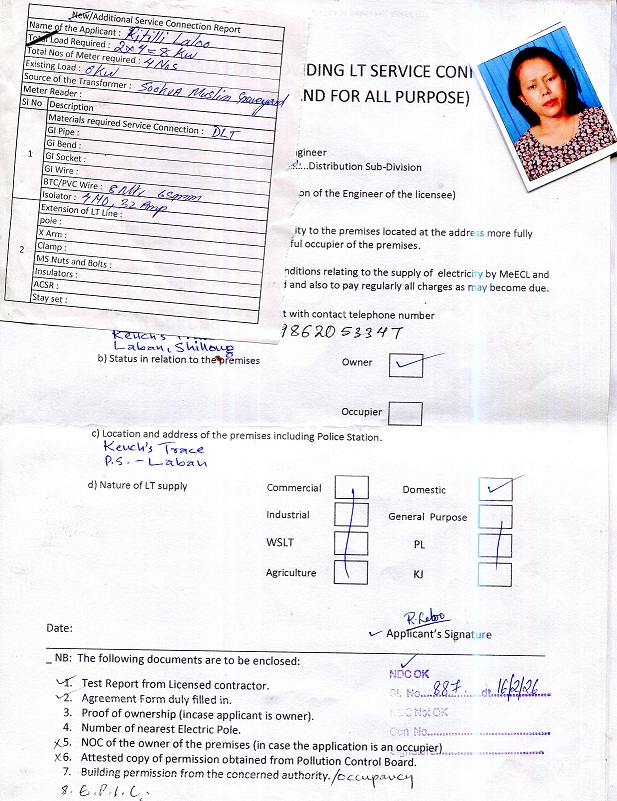 New/Additional Service Connection Report
Name of the Applicant : Ritilli Laloo
Total Load Required : 2x4=8 KW
Total Nos of Meter required : 4 Nos
Existing Load : 0KW
Source of the Transformer : Muslim Graveyard
Meter Reader :
Sl No Description
Materials required Service Connection : DLT
1
GI Pipe :
GI Bend :
GI Socket :
GI Wire :
BTC/PVC Wire : 8 Mtr 6sqmm
Isolator : 4 NO, 32 Amp
2
Extension of LT Line :
pole :
X Arm :
Clamp :
MS Nuts and Bolts :
Insulators :
ACSR :
Stay set :
DING LT SERVICE CONN
ND FOR ALL PURPOSE)
gineer
Distribution Sub-Division
on of the Engineer of the licensee)
ity to the premises located at the address more fully
ful occupier of the premises.
nditions relating to the supply of electricity by MeECL and
d and also to pay regularly all charges as may become due.
t with contact telephone number
9862053347
Keuch's Trace
Laban, Shillong
b) Status in relation to the premises
Owner
Occupier
c) Location and address of the premises including Police Station.
Keuch's Trace
P.S. - Laban
d) Nature of LT supply
Commercial Domestic
Industrial General Purpose
WSLT PL
Agriculture KJ
R. Laloo
Date:
Applicant's Signature
NB: The following documents are to be enclosed:
NDC OK
1. Test Report from Licensed contractor.
SL No....887....dt. 16/2/26
2. Agreement Form duly filled in.
3. Proof of ownership (incase applicant is owner).
NDC Not OK
4. Number of nearest Electric Pole.
Con No.
5. NOC of the owner of the premises (in case the application is an occupier)
X6. Attested copy of permission obtained from Pollution Control Board.
7. Building permission from the concerned authority./occupancy
8. E.P.I.C.